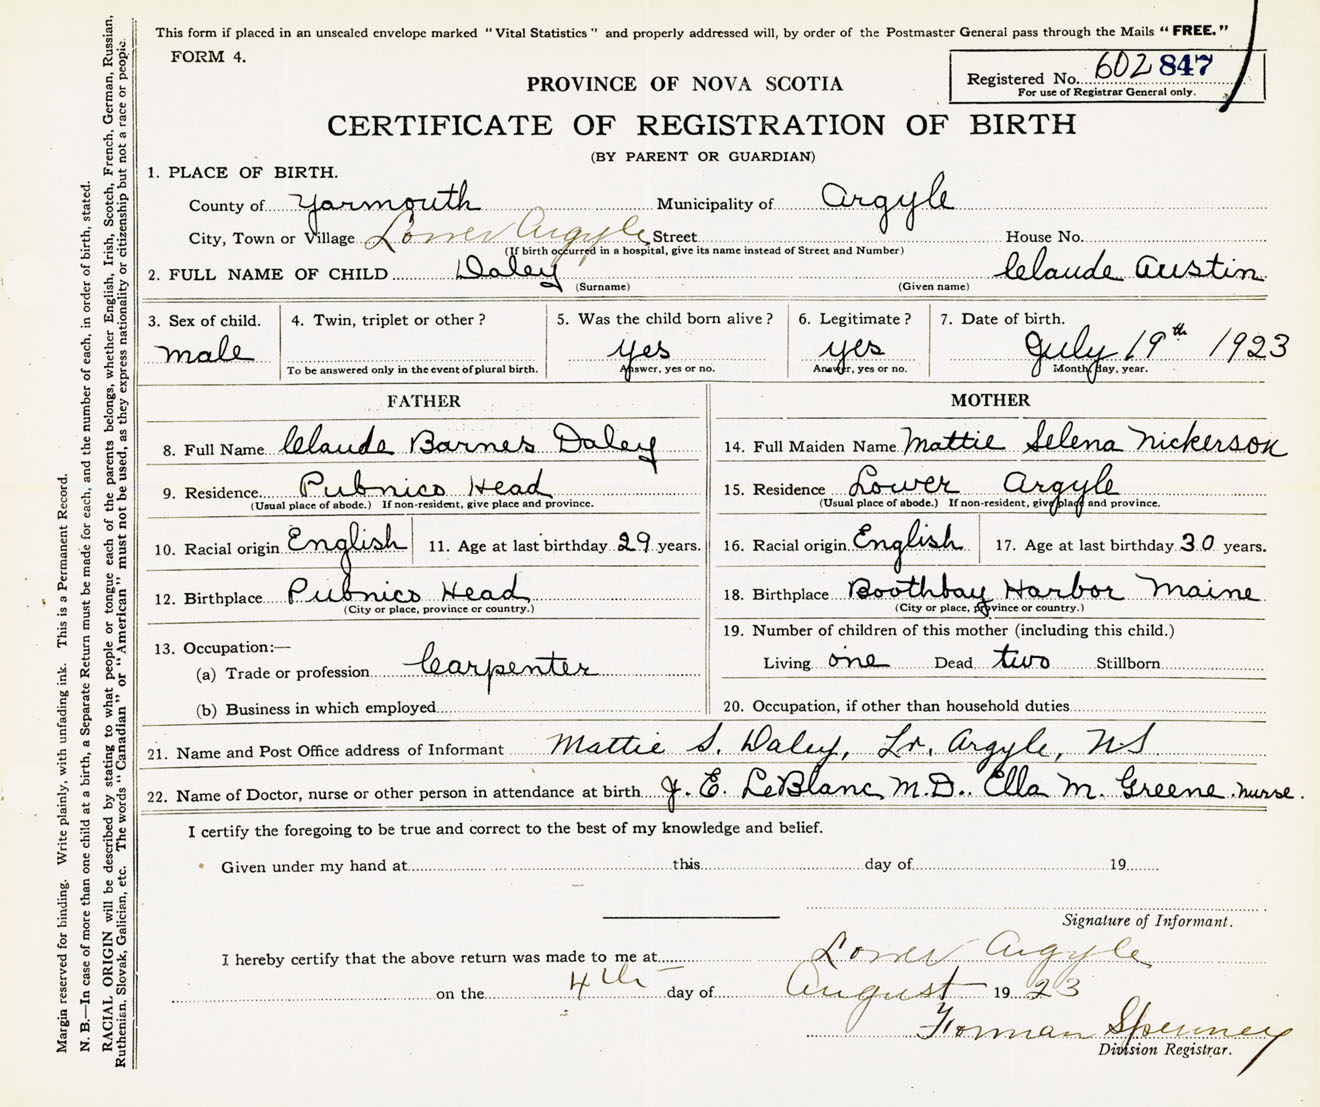 This form if placed in an unsealed envelope marked "Vital Statistics" and properly addressed will, by order of the Postmaster General pass through the Mails "FREE."
FORM 4.
Registered No. 602 847
For use of Registrar General only.
PROVINCE OF NOVA SCOTIA
CERTIFICATE OF REGISTRATION OF BIRTH
(BY PARENT OR GUARDIAN)
1. PLACE OF BIRTH.
County of Yarmouth Municipality of Argyle
City, Town or Village Lower Argyle Street House No.
(If birth occurred in a hospital, give its name instead of Street and Number)
2. FULL NAME OF CHILD Daley Claude Austin
(Surname) (Given name)
3. Sex of child. 4. Twin, triplet or other? 5. Was the child born alive? 6. Legitimate? 7. Date of birth.
male yes yes July 19th 1923
To be answered only in the event of plural birth. Answer, yes or no. Answer, yes or no. Month, day, year.
FATHER
8. Full Name Claude Barnes Daley
9. Residence Pubnico Head
(Usual place of abode.) If non-resident, give place and province.
10. Racial origin English 11. Age at last birthday 29 years.
12. Birthplace Pubnico Head
(City or place, province or country.)
13. Occupation:—
(a) Trade or profession Carpenter
(b) Business in which employed
MOTHER
14. Full Maiden Name Mattie Selena Nickerson
15. Residence Lower Argyle
(Usual place of abode.) If non-resident, give place and province.
16. Racial origin English 17. Age at last birthday 30 years.
18. Birthplace Boothbay Harbor Maine
(City or place, province or country.)
19. Number of children of this mother (including this child.)
Living one Dead two Stillborn
20. Occupation, if other than household duties
21. Name and Post Office address of Informant Mattie S. Daley, Lr. Argyle, NS
22. Name of Doctor, nurse or other person in attendance at birth J. E. LeBlanc M.D.. Ella M. Greene. nurse.
I certify the foregoing to be true and correct to the best of my knowledge and belief.
Given under my hand at this day of 19
Signature of Informant.
I hereby certify that the above return was made to me at Lower Argyle
on the 4th day of August 1923
Forman Spinney
Division Registrar.
Margin reserved for binding. Write plainly, with unfading ink. This is a Permanent Record.
N. B.—In case of more than one child at a birth, a Separate Return must be made for each, and the number of each, in order of birth, stated.
RACIAL ORIGIN will be described by stating to what people or tongue each of the parents belongs, whether English, Irish, Scotch, French, German, Russian,
Ruthenian, Slovak, Galician, etc. The words "Canadian" or "American" must not be used, as they express nationality or citizenship but not a race or people.